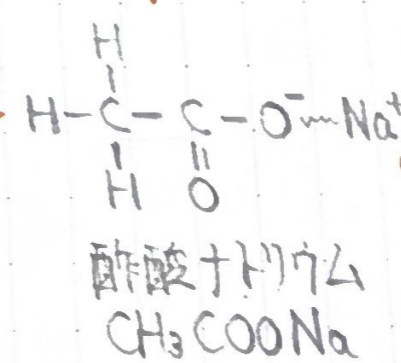 H
H-C-C-O⁻Na⁺
H O
酢酸ナトリウム
CH₃COONa